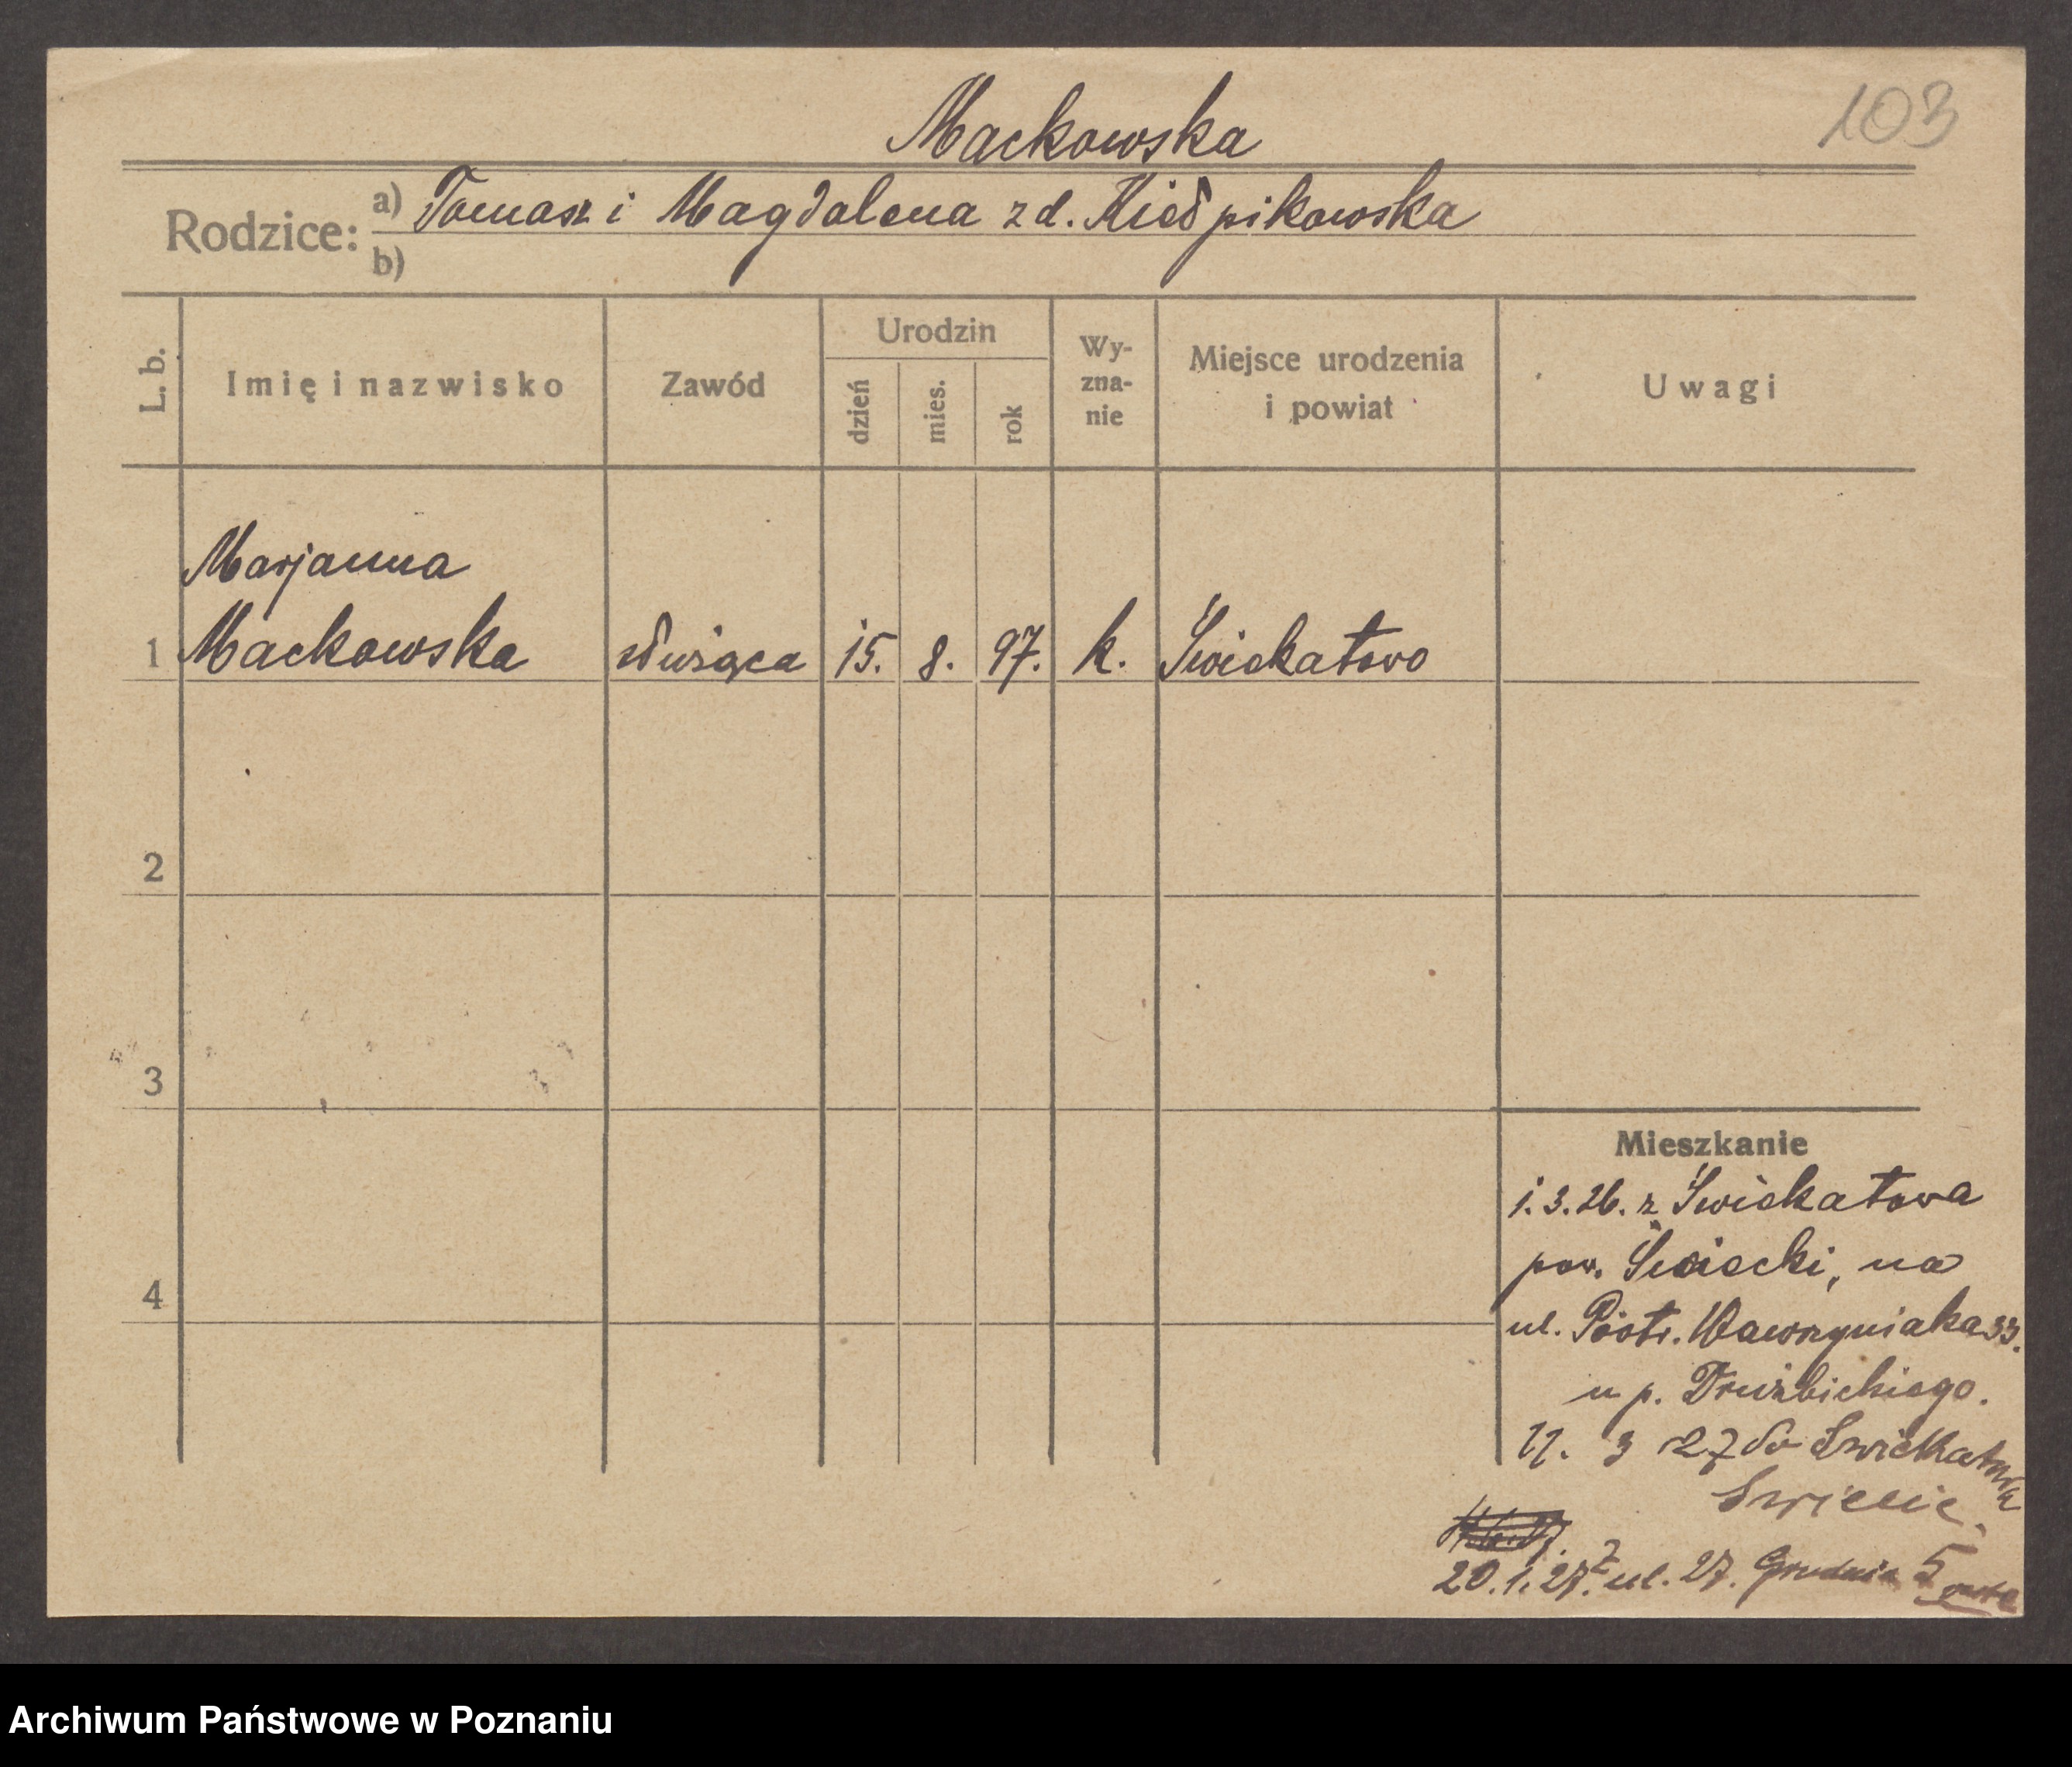 103
Mackowska
Rodzice: a) Tomasz i Magdalena z d. Kiełpikowska
b)
L. b. Imię i nazwisko Zawód Urodzin dzień mies. rok Wyznanie Miejsce urodzenia i powiat Uwagi
Marjanna
1 Mackowska służąca 15. 8. 97. k. Świekatowo
2
3
4
Mieszkanie
1. 3. 26. z Świekatowa
pow. Świecki, na
ul. Piotr. Wawrzyniaka 33.
u p. Drużbickiego.
11. 3 27 do Świekatowa
Swiecie
20. 1. 27. ul. 27. Grudnia 5
Archiwum Państwowe w Poznaniu